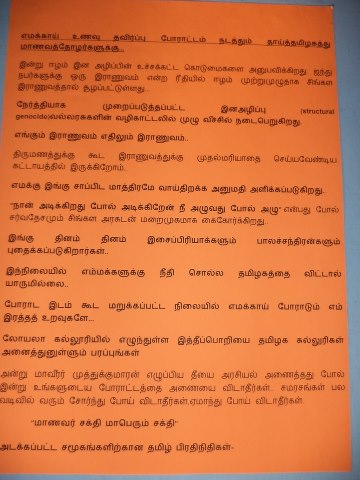 எமக்காய் உணவு தவிர்ப்பு போராட்டம் நடத்தும் தாய்த்தமிழகத்து
மாணவத்தோழர்களுக்கு...
இன்று ஈழம் இன அழிப்பின் உச்சக்கட்ட கொடுமைகளை அனுபவிக்கிறது. ஐந்து
நபர்களுக்கு ஒரு இராணுவம் என்ற ரீதியில் ஈழம் முற்றுமுழுதாக சிங்கள
இராணுவத்தால் சூழப்பட்டுள்ளது..
நேர்த்தியாக முறைப்படுத்தப்பட்ட இனஅழிப்பு (structural
genocide)வல்வரசுகளின் வழிகாட்டலில் முழு வீச்சில் நடைபெறுகிறது.
எங்கும் இராணுவம் எதிலும் இராணுவம்..
திருமணத்துக்கு கூட இராணுவத்துக்கு முதல்மரியாதை செய்யவேண்டிய
கட்டாயத்தில் இருக்கிறோம்.
எமக்கு இங்கு சாப்பிட மாத்திரமே வாய்திறக்க அனுமதி அளிக்கப்படுகிறது.
"நான் அடிக்கிறது போல் அடிக்கிறேன் நீ அழுவது போல் அழு" என்பது போல்
சர்வதேசமும் சிங்கள அரசுடன் மறைமுகமாக கைகோர்க்கிறது..
இங்கு தினம் தினம் இசைப்பிரியாக்களும் பாலச்சந்திரன்களும்
புதைக்கப்படுகிறார்கள்..
இந்நிலையில் எம்மக்களுக்கு நீதி சொல்ல தமிழகத்தை விட்டால்
யாருமில்லை..
போராட இடம் கூட மறுக்கப்பட்ட நிலையில் எமக்காய் போராடும் எம்
இரத்தத் உறவுகளே...
லோயலா கல்லூரியில் எழுந்துள்ள இத்தீப்பொறியை தமிழக கல்லூரிகள்
அனைத்துனுள்ளும் பரப்புங்கள்
அன்று மாவீரர் முத்துக்குமாரன் எழுப்பிய தீயை அரசியல் அணைத்தது போல்
இன்று உங்களுடைய போராட்டத்தை அணைய விடாதீர்கள்.. சமரசங்கள் பல
வடிவில் வரும் சோர்ந்து போய் விடாதீர்கள்.ஏமாந்து போய் விடாதீர்கள்.
"மாணவர் சக்தி மாபெரும் சக்தி"
அடக்கப்பட்ட சமூகங்களிற்கான தமிழ் பிரதிநிதிகள்-